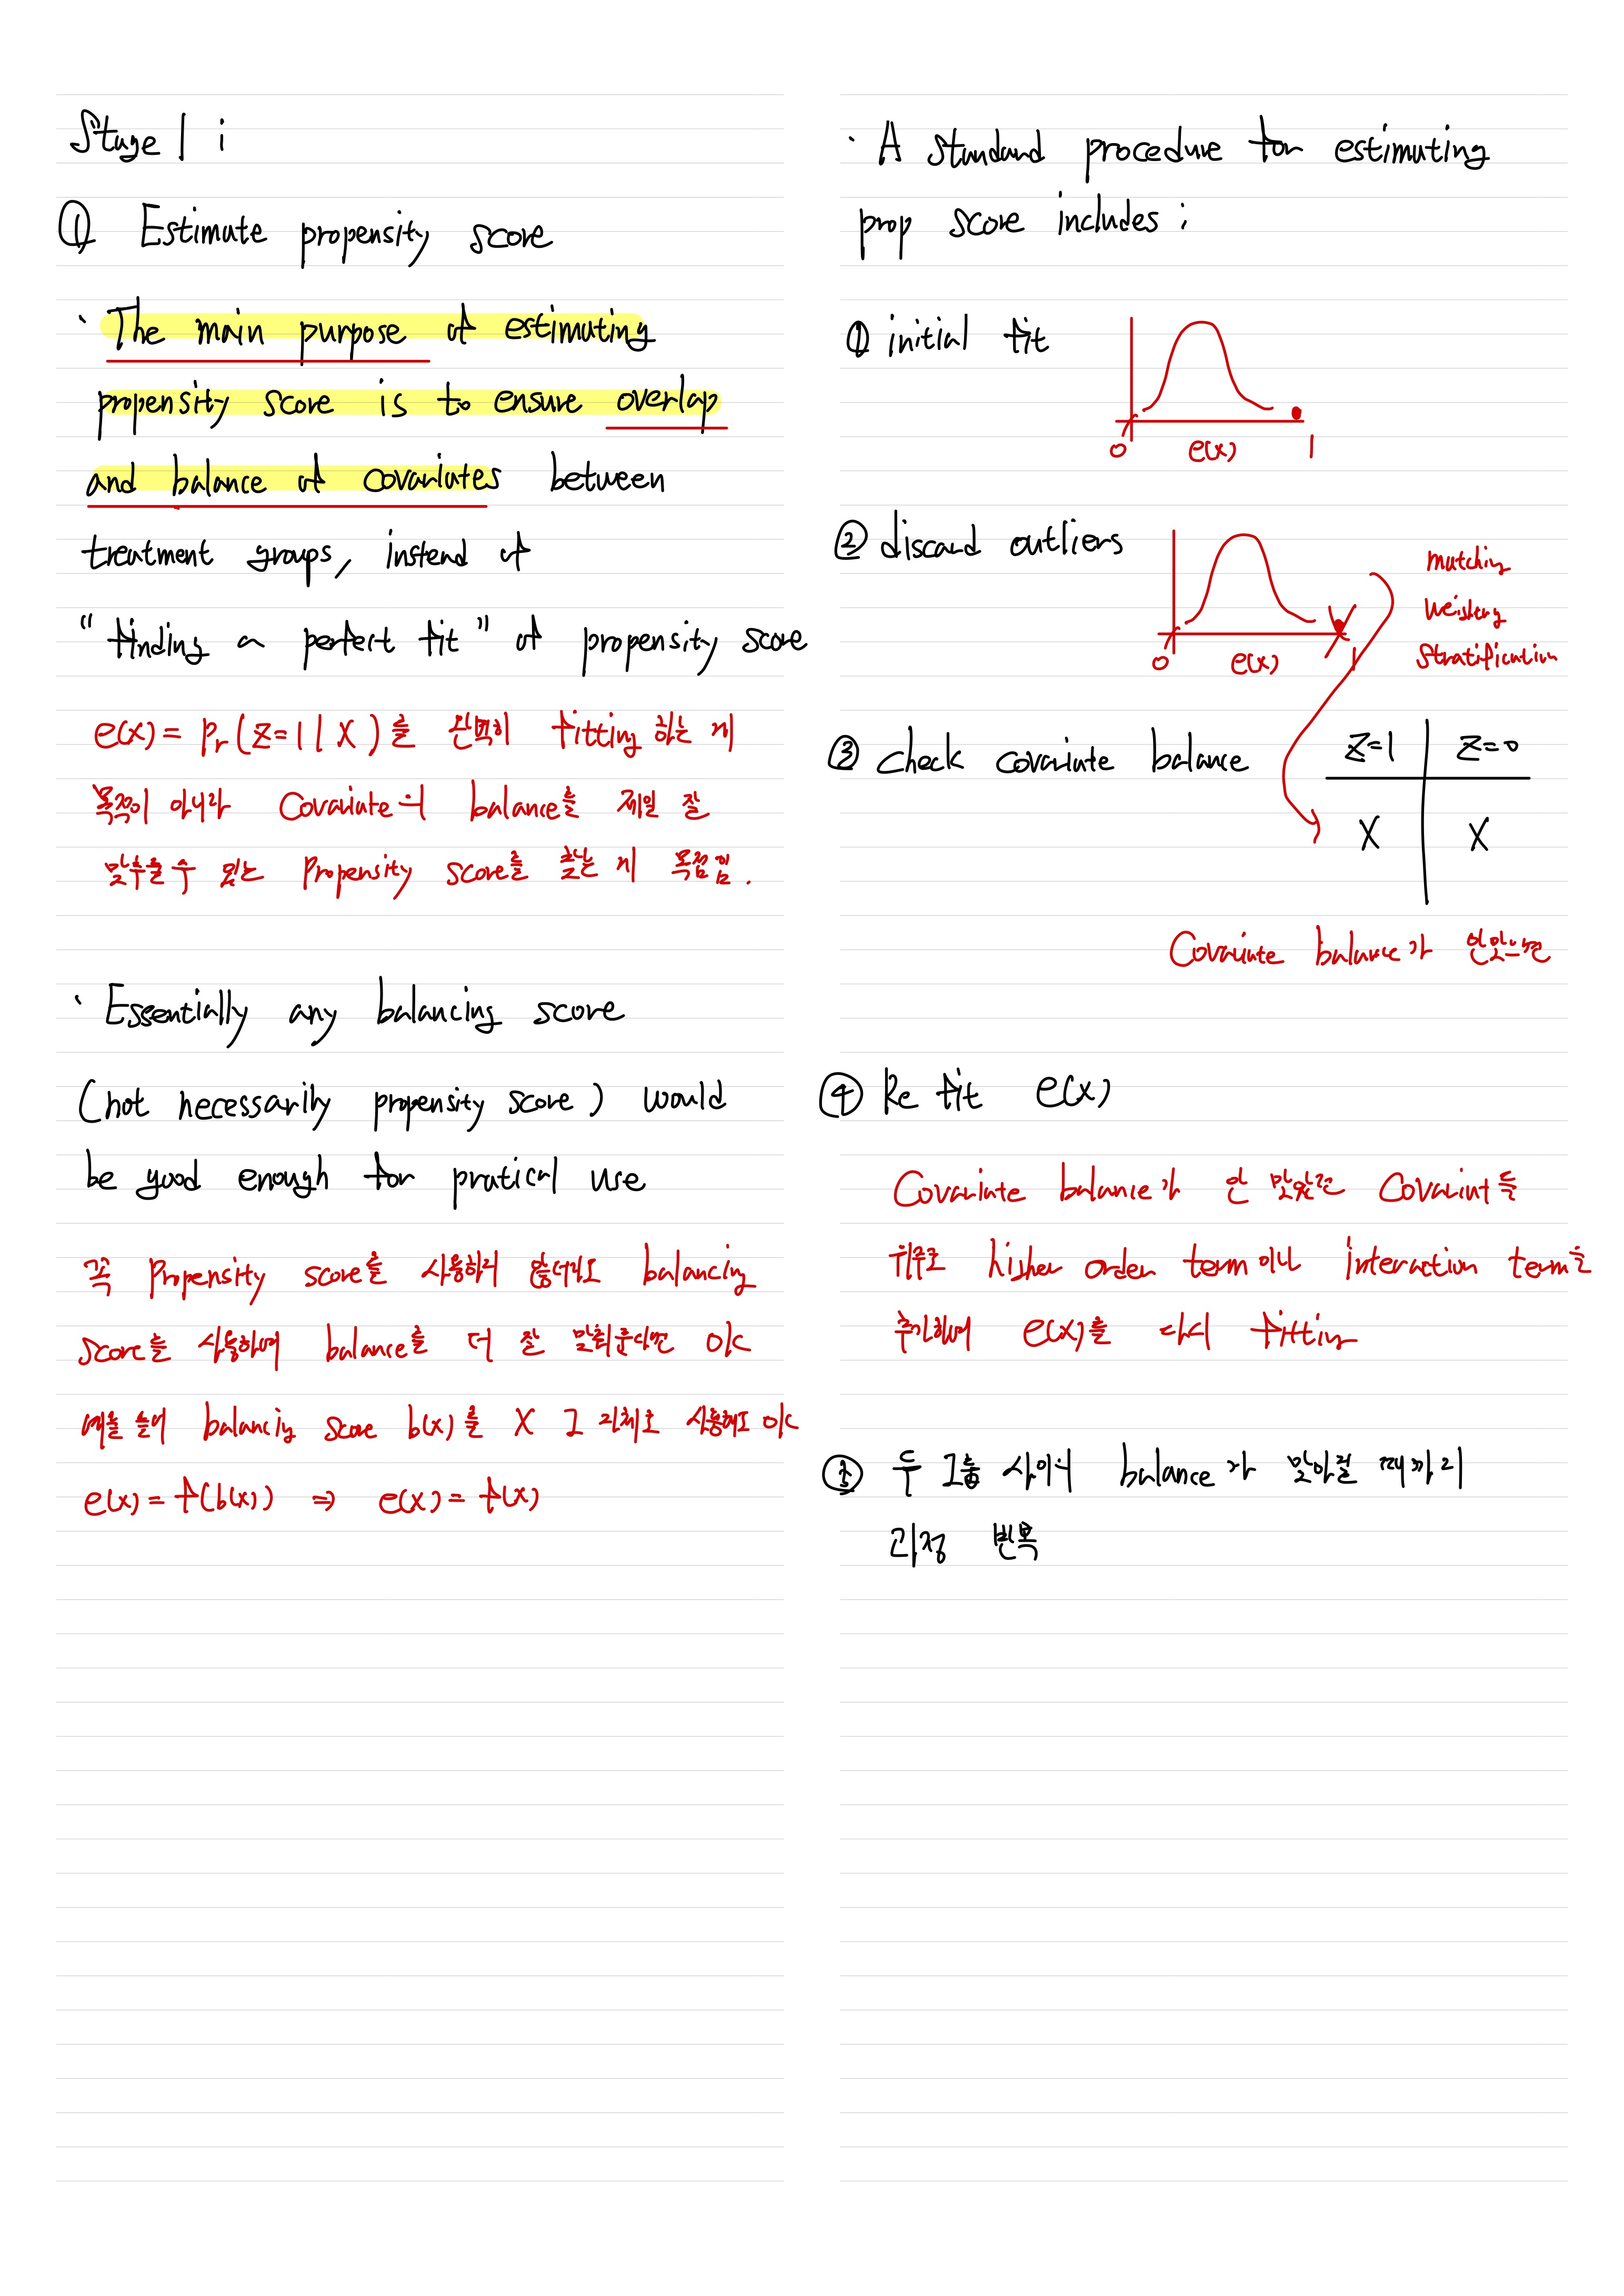 Stage 1 ;
① Estimate propensity score
· The main purpose of estimating
propensity score is to ensure overlap
and balance of covariates between
treatment groups, instead of
"finding a perfect fit" of propensity score
e(x) = Pr(Z=1 | X)를 완벽히 fitting 하는 게
목적이 아니라 Covariate의 balance를 제일 잘
맞추울 수 있는 Propensity score를 찾는 게 목적임.
· Essentially any balancing score
(not necessarily propensity score) would
be good enough for pratical use
꼭 Propensity score를 사용하지 않더라도 balancing
score를 사용하여 balance를 더 잘 맞춰준다면 OK
예를 들어 balancing score b(x)를 X 그 자체로 사용해도 OK
e(x) = f(b(x)) ⇒ e(x) = f(x)
· A standard procedure for estimating
prop score includes ;
① initial fit
0 e(x) 1
② discard outliers
0 e(x) 1
matching
weighting
stratification
③ check covariate balance
Z=1 Z=0
X X
Covariate balance가 안맞으면
④ Re fit e(x)
Covariate balance가 안 맞았던 Covariate들
위주로 higher order term이나 interaction term을
추가하여 e(x)를 다시 fitting
⑤ 두 그룹 사이의 balance가 맞아질 때까지
과정 반복